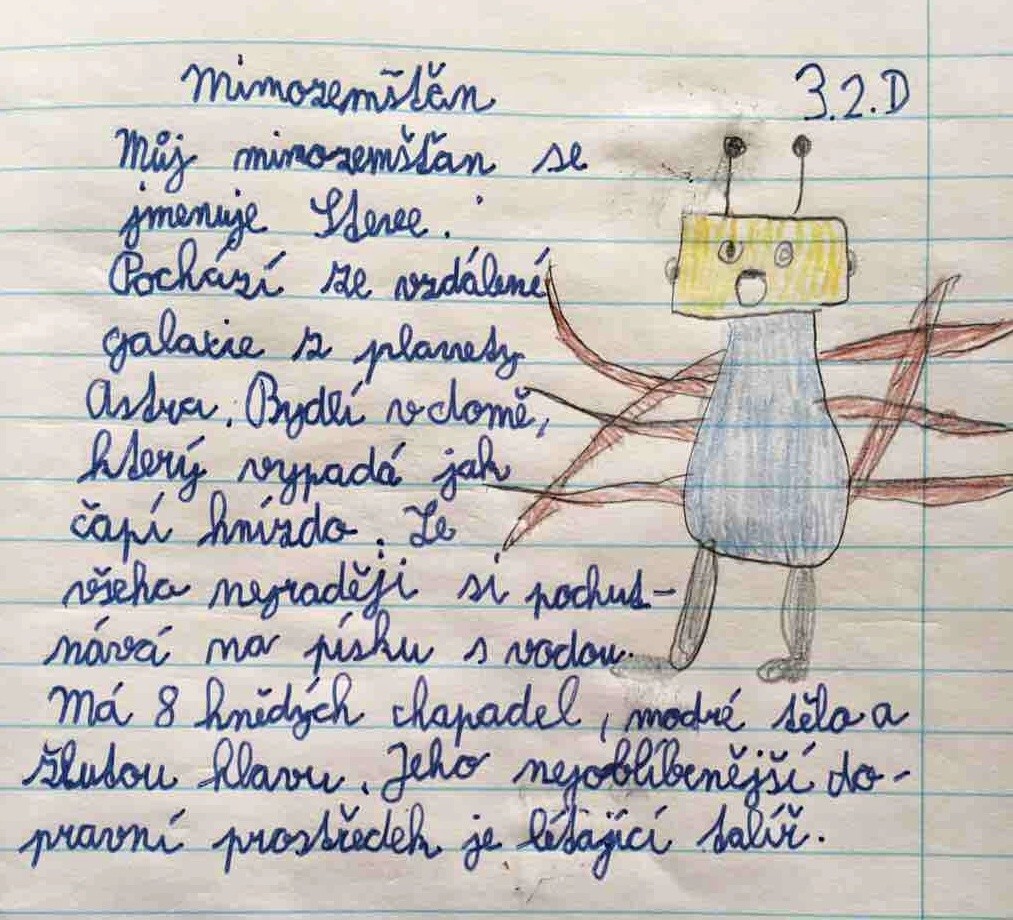 Mimozemšťan 3.2.D
Můj mimozemšťan se
jmenuje Steve.
Pochází ze vzdálené
galaxie z planety
Astra. Bydlí v domě,
který vypadá jak
čapí hnízdo. Ze
všeho nejraději si pochut-
nává na písku s vodou.
Má 8 hnědých chapadel, modré tělo a
žlutou hlavu. Jeho nejoblíbenější do-
pravní prostředek je létající talíř.